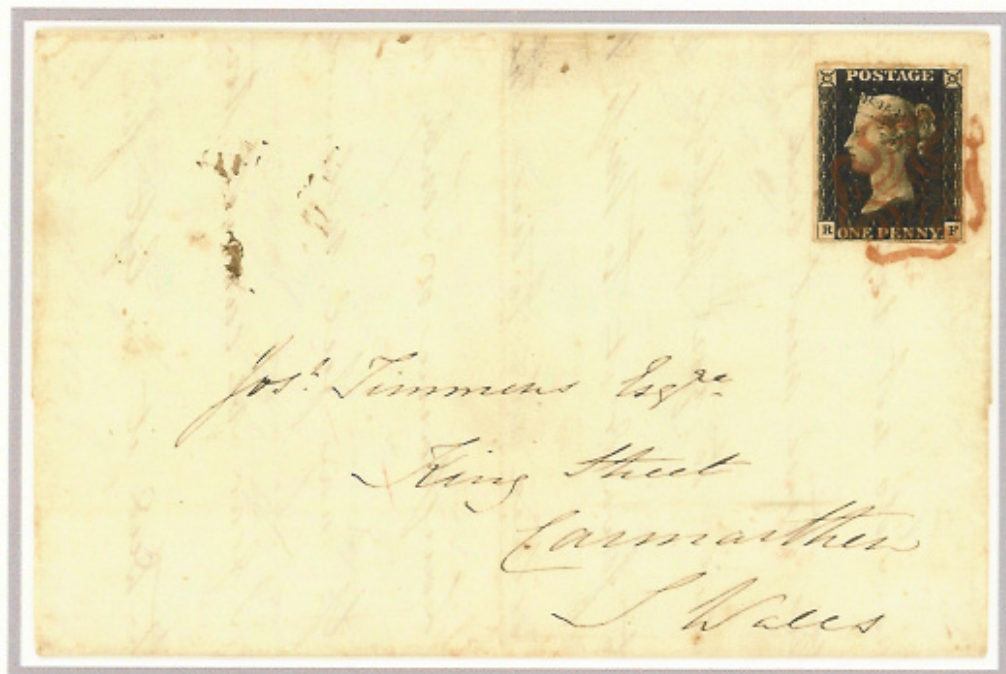 POSTAGE
R ONE PENNY F
Josh. Timmens Esqre.
King Street
Carmarthen
S. Wales